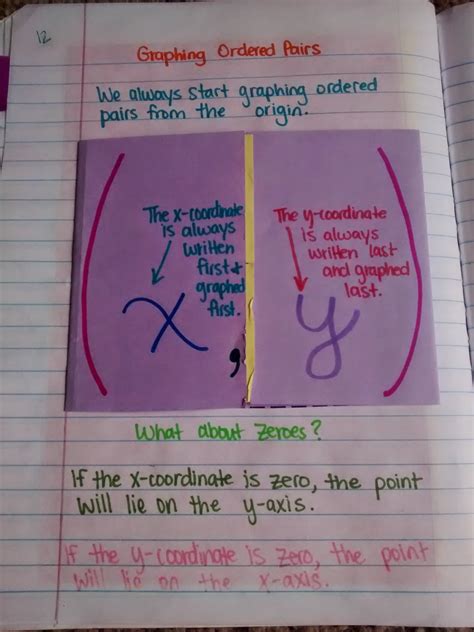 12
Graphing Ordered Pairs
We always start graphing ordered
pairs from the origin.
The x-coordinate
is always
written
first &
graphed
first.
The y-coordinate
is always
written last
and graphed
last.
( x , y )
What about zeroes?
If the x-coordinate is zero, the point
will lie on the y-axis.
If the y-coordinate is zero, the point
will lie on the x-axis.